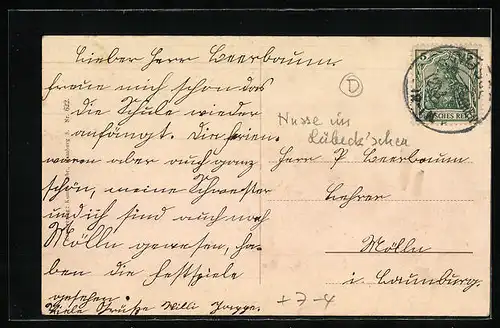 Lieber Herr Beerbaum.
freue mich schon das
die Schule wieder
anfängt. Die Ferien
waren aber auch ganz
schön, meine Schwester
und ich sind auch nach
Mölln gewesen, ha-
ben die Festspiele
gesehen.
Viele Grüße Willi
D
Husse im
Lübeck'schen
Herr P Beerbaum
Lehrer
Mölln
i. Lauenburg.
+7-4
SCHES REI
Nr. 622.